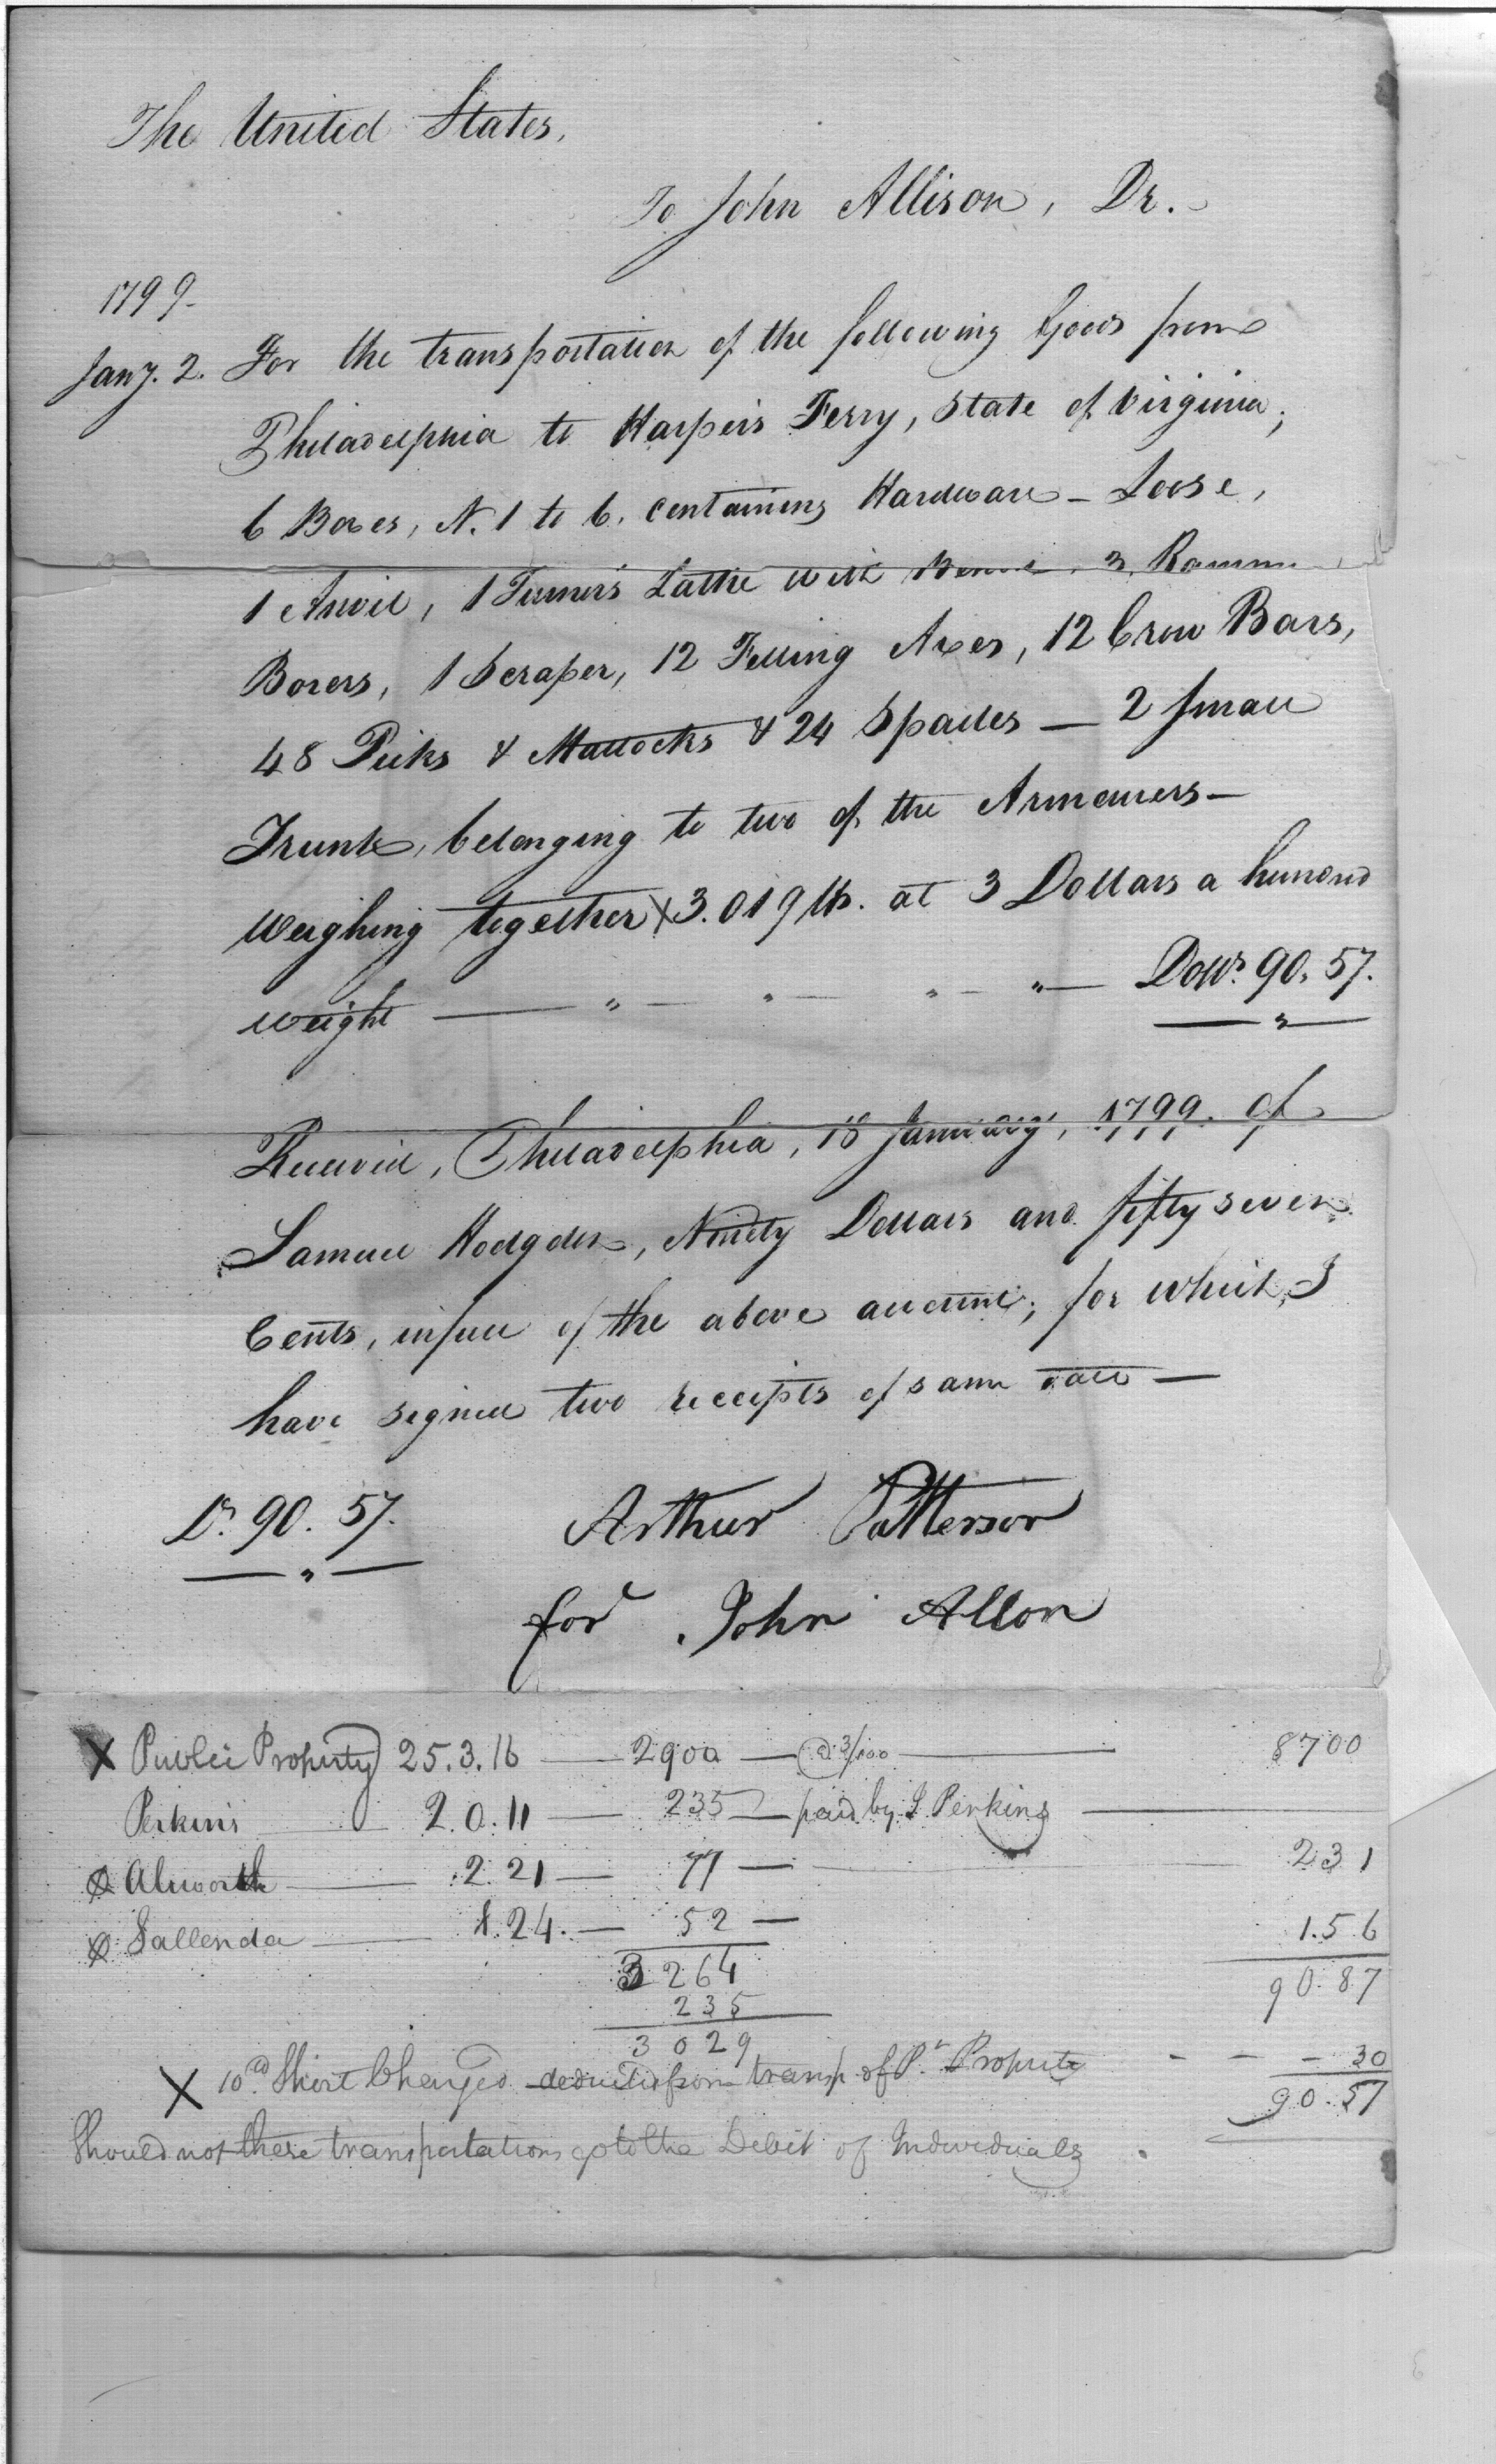 The United States,
To John Allison, Dr.
1799.
Jany. 2. For the transportation of the following Goods from
Philadelphia to Harpers Ferry, State of Virginia;
6 Boxes, N. 1 to 6. containing Hardware – Loose,
1 Anvil, 1 Turner's Lathe with 3
Borers, 1 Scraper, 12 Felling Axes, 12 Crow Bars,
48 Picks & Mattocks & 24 Spades — 2 small
Trunks, belonging to two of the Armourers –
weighing together X 3.019 lb. at 3 Dollars a hundred
weight — " — " — " — " — Dolls. 90.57.
Received, Philadelphia, 18 January, 1799. of
Samuel Hodgdon, Ninety Dollars and fifty seven
Cents, in full of the above account; for which I
have signed two receipts of same date —
Ds. 90.57.
Arthur Patterson
for John Allon
X Public Property 25.3.16 — 2900 — @ 3/100 — 8700
Perkins 2.0.11 — 235 — paid by J. Perkins —
Ø Alworth — 2.21 — 77 — 231
Ø Sallenda — 1.24. — 52 — 1.56
3264 90.87
235
3029
X 10 Short Charged deducted from transp. of P. Property - - - 30
90.57
Should not these transportations go to the Debit of Individuals